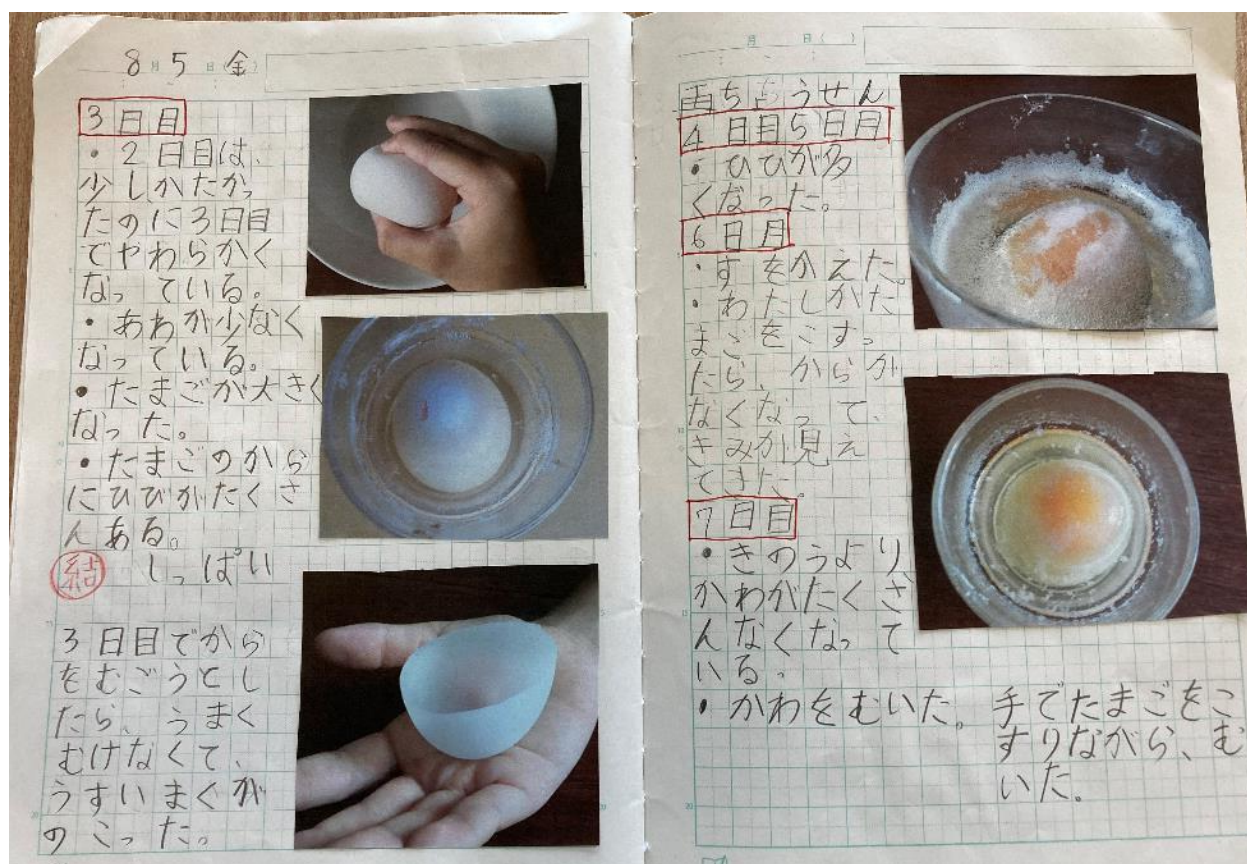 8月5日(金)
3日目
・2日目は、
少しかたかっ
たのに3日目
でやわらかく
なっている。
・あわが少なく
なっている。
・たまごが大きく
なった。
・たまごのから
にひびがたくさ
んある。
結 しっぱい
3日目でから
をむごうとし
たら、うまく
むけなくて、
うすいまくが
のこった。
月 日( )
再ちょうせん
4日目5日目
・ひびが多
くなった。
6日目
・すをかえた。
・わたしがた
まごをこすっ
たら、からが
なくなって、
きみが見え
てきた。
7日目
・きのうより
かわがたくさ
んなくなって
いる。
・かわをむいた。手でたまごをこ
すりながら、む
いた。